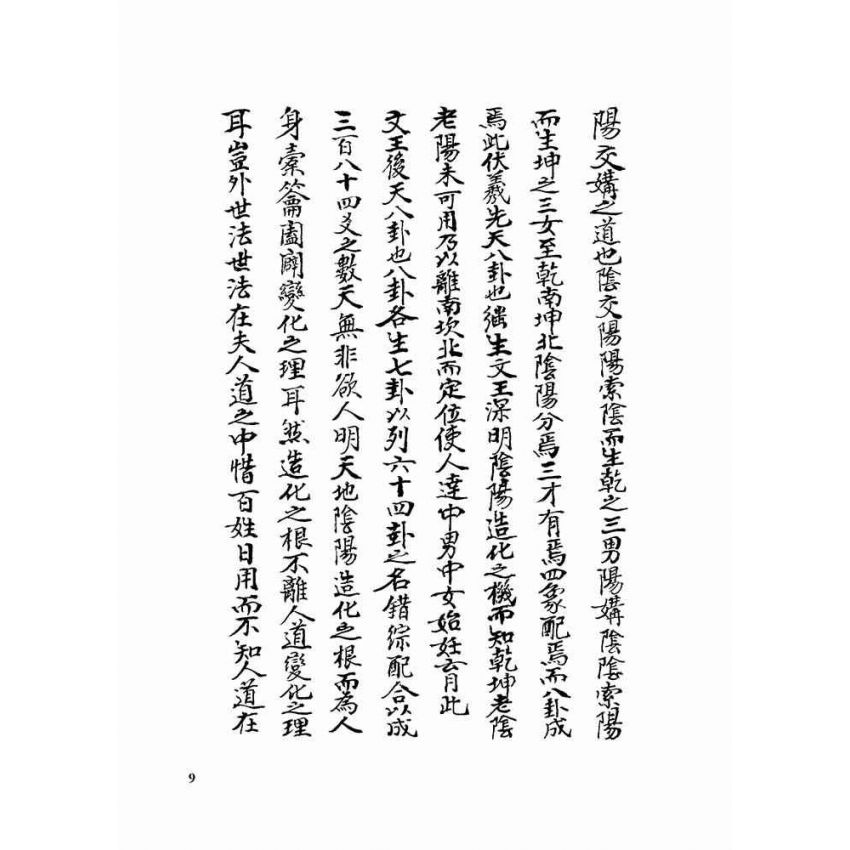 陽交媾之道也陰交陽陽索陰而生乾之三男陽媾陰陰索陽
而生坤之三女至乾南坤北陰陽分焉三才有焉四象配焉而八卦成
焉此伏羲先天八卦也繼生文王深明陰陽造化之機而知乾坤老陰
老陽未可用乃以離南坎北而定位使人達中男中女始妊月此
文王後天八卦也八卦各生七卦以列六十四卦之名錯綜配合以成
三百八十四爻之數天無非欲人明天地陰陽造化之根而為人
身橐籥闔闢變化之理耳然造化之根不離人道變化之理
耳豈外世法世法在夫人道之中惜百姓日用而不知人道在
9